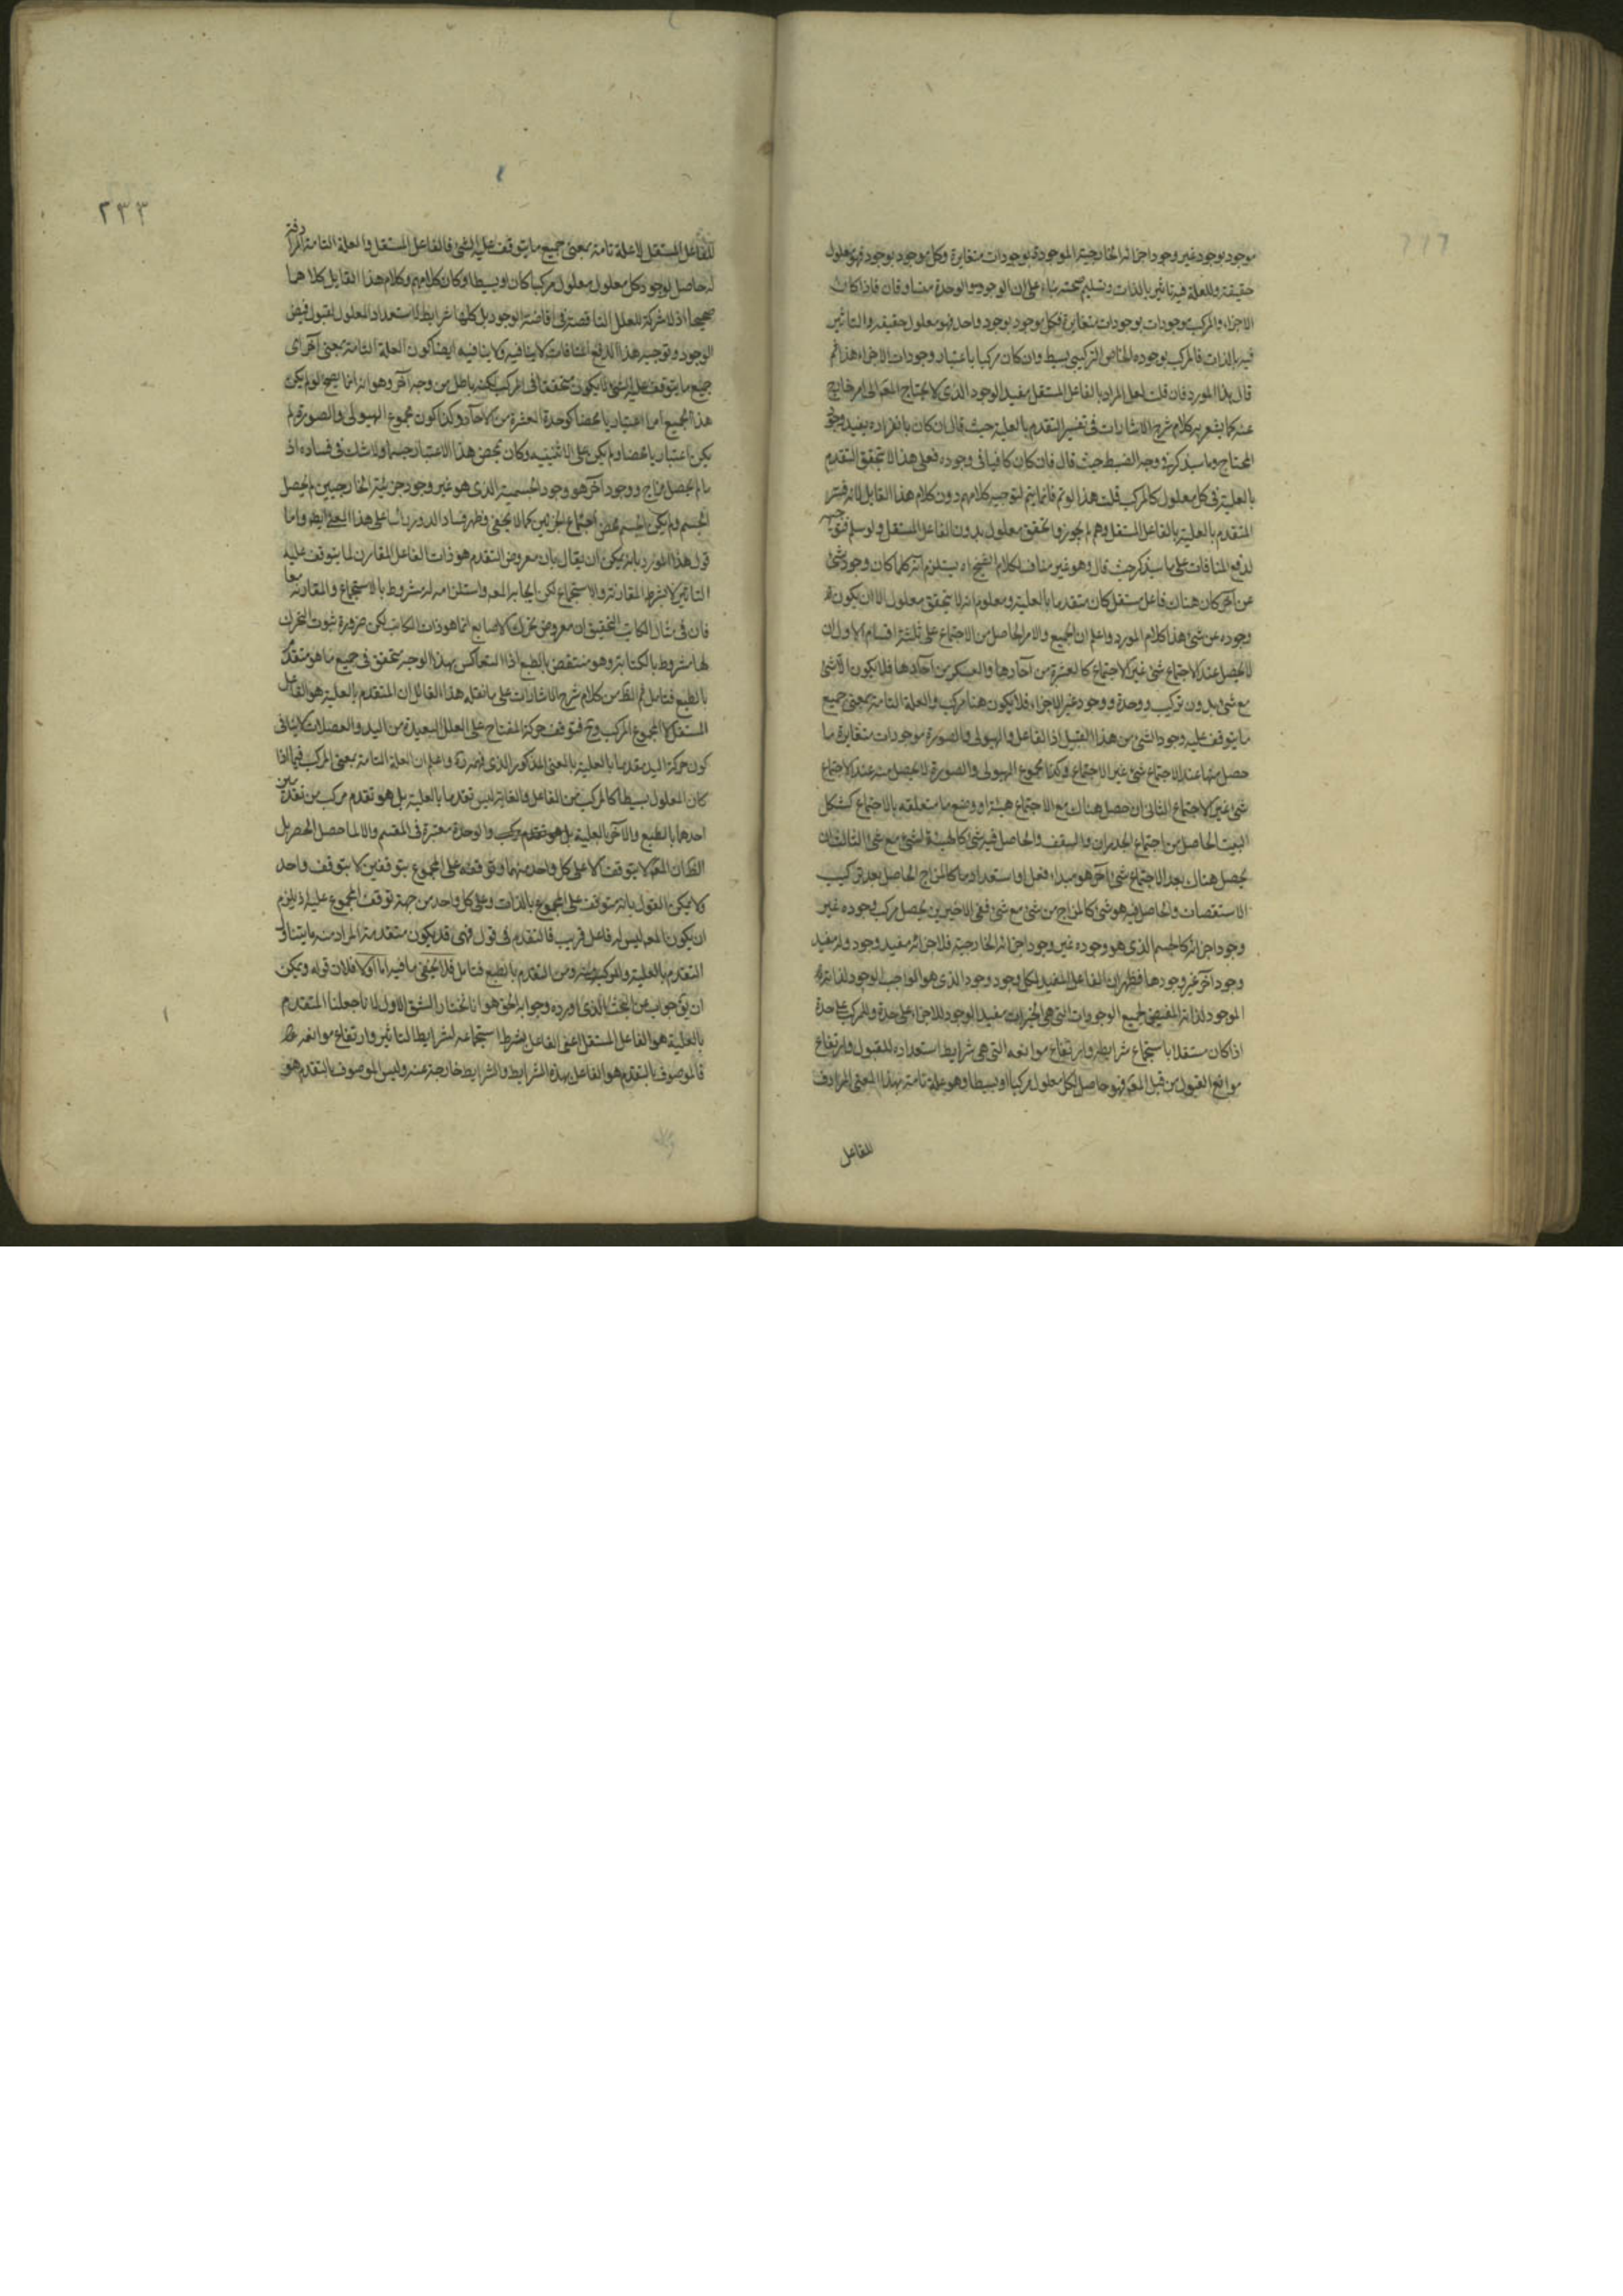 موجود بوجود غير وجود اجزائه الخارجية الموجودة بوجودات متغايرة وكل موجود بوجود فهو معلول
حقيقة وللعلة فيه تاثير بالذات وتسليم صحته بناء على ان الوجود والوحدة متساوقان فاذا كانت
الاجزاء والمركب موجودات بوجودات متغايرة فكل موجود بوجود واحد فهو معلول حقيقة والتاثير
فيه بالذات فالمركب بوجوده الخاص التركيبي بسيط وان كان مركبا باعتبار وجودات الاجزاء هذا ثم
قال هذا المورد فان قلت لعل المراد بالفاعل المستقل مفيد الوجود الذي لا يحتاج المعلم الى امر خارج
عنه كما يشعر به كلام شرح الاشارات في تفسير التقدم بالعلية حيث قال ان كان بانفراده يفيد وجود
المحتاج وما سيذكره في وجه الضبط حيث قال فان كان كافيا في وجوده فعلى هذا لا يتحقق التقدم
بالعلية في كل معلول كالمركب قلت هذا لو تم فانما يتم لتوجيه كلامهم دون كلام هذا القايل لانه فسر
المتقدم بالعلية بالفاعل المستقل وهم لم يجوزوا تحقق معلول بدون الفاعل المستقل ولو سلم
لدفع المنافات على ما سيذكر حيث قال وهو غير مناف لكلام الشيخ اه يستلزم انه كلما كان وجود شئ
عن آخر كان هناك فاعل مستقل كان متقدما بالعلية ومعلوم انه لا يتحقق معلول الا ان يكون
وجوده عن شئ هذا كلام المورد واعلم ان الجميع والامر الحاصل من الاجتماع على ثلثة اقسام الاول ان
لا يحصل عند الاجتماع شئ غير الاجتماع كالعشرة من آحادها والعسكر من آحادها فلا يكون الا شئ
مع شئ بدون تركيب ووحدة ووجود غير الاجزاء فلا يكون هنا مركب والعلة التامة بمعنى جميع
ما يتوقف عليه وجود الشئ من هذا القبيل اذ الفاعل والهيولى والصورة موجودات متغايرة ما
حصل منها عند الاجتماع شئ غير الاجتماع وكذا مجموع الهيولى والصورة لا يحصل منه عند الاجتماع
شئ غير الاجتماع الثاني ان حصل هناك مع الاجتماع هيئة او وضع ما متعلقه بالاجتماع كشكل
البيت الحاصل من اجتماع الجدران والسقف والحاصل فيه شئ كالهيئة لشئ مع شئ الثالث ان
يحصل هناك بعد الاجتماع شئ آخر هو مبداء فعل او استعداد ما كالمزاج الحاصل بعد تركيب
الاستقصات والحاصل فيه هو شئ كالمزاج من شئ مع شئ ففي الاخيرين يحصل مركب وجوده غير
وجود اجزائه كالجسم الذي هو وجوده غير وجود اجزائه الخارجية فلاجزائه مفيد وجود وله مفيد
وجود آخر غير وجودها فظهر ان الفاعل المفيد لكل وجود وجود الذي هو الواجب الوجود لذاته
الموجود لذاته المفيض لجميع الوجودات التي هي الخيرات مفيد الوجود للاجزاء على حدة وللمركب على حدة
اذا كان مستقلا باستجماع شرايطه وارتفاع موانعه التي هي شرايط استعداده للقبول وارتفاع
موانع القبول من قبل المعلم فهو حاصل لكل معلول مركبا او بسيطا وهو علة تامة بهذا المعنى المرادف
للفاعل
٢٣٣
للفاعل المستقل لا علة تامة بمعنى جميع ما يتوقف عليه الشئ فالفاعل المستقل والعلة التامة المرادفة
له حاصل لوجود كل معلول معلول مركبا كان او بسيطا وكان كلامهم وكلام هذا القايل كلاهما
صحيحا اذ لا شركة للعلل الناقصة في افاضة الوجود بل كلها شرايط لاستعداد المعلول لقبول فيض
الوجود وتوجيه هذا الدفع المنافات لا ينافيه ولا ينافيه ايضا كون العلة التامة بمعنى آخر اى
جميع ما يتوقف عليه الشئ لا يكون متحققا في المركب لكنه باطل من وجه آخر وهو انه انما يصح لو لم يكن
هذا الجميع امرا اعتباريا محضا كوحدة العشرة من الآحاد وكذا كون مجموع الهيولى والصورة لم
يكن اعتباريا محضا ولم يكن على الاثنينيه وكان بمحض هذا الاعتبار جسما ولا شك في فساده اذ
ما لم يحصل مزاج ووجود آخر هو وجود الجسمية الذي هو غير وجود جزئيته الخارجيين لم يحصل
الجسم ولم يكن الجسم محض اجتماع الجزئين كما لا يخفى وظهر فساد الدور بناء على هذا المعنى ايضا واما
قول هذا المورد بانه يمكن ان يقال بان معروض التقدم هو ذات الفاعل المقارن لما يتوقف عليه
التاثير لا بشرط المقارنة والاستجماع لكن ايجابه المعلم واستلزامه له مشروط بالاستجماع والمقارنة معا
فان في مثال الكاتب التحقيق ان معروض تحرك الاصابع انما هو ذات الكاتب لكن ضرورة ثبوت التحرك
لها مشروط بالكتابة وهو منتقض بالطبع اذ التعاكس بهذا الوجه يتحقق في جميع ما هو متقدم
بالطبع فتامل ثم الظ من كلام شرح الاشارات على ما نقله هذا القائل ان المتقدم بالعلية هو الفاعل
المستقل لا المجموع المركب وح فتوقف حركة المفتاح على العلل البعيدة من اليد والعضلات لا ينافي
كون حركة اليد متقدما بالعلية بالمعنى المذكور الذي واعلم ان العلة التامة بمعنى المركب فيما اذا
كان المعلول بسيطا كالمركب من الفاعل والغاية ليس تقدمها بالعلية بل هو تقدم مركب من تقدمين
احدها بالطبع والآخر بالعلية بل هو تقدم مركب والوحدة معتبرة في المقسم والا لما حصل الحصر بل
الظ ان المعلم لا يتوقف الا على كل واحد منهما وتوقفه على المجموع بتوقفين لا بتوقف واحد
ولا يمكن القول بانه متوقف على المجموع بالذات وعلى كل واحد من جهة توقف المجموع عليه اذ يلزم
ان يكون المعلم ليس له فاعل قريب فالتقدم في قول فهي قد يكون متقدمة المراد منه ما يتناول
التقدم بالعلية والمركب منه ومن التقدم بالطبع فتامل فلا يخفى ما فيه اما اولا فلان قوله ويمكن
ان يق جواب عن البحث الذي اورده وجوابه الحق هو انا نختار الشق الاول لانا جعلنا المتقدم
بالعلية هو الفاعل المستقل اعنى الفاعل بشرط استجماعه لشرايط التاثير وارتفاع موانعه
فالموصوف بالتقدم هو الفاعل بهذه الشرايط والشرايط خارجة عنه وليس الموصوف بالتقدم هو